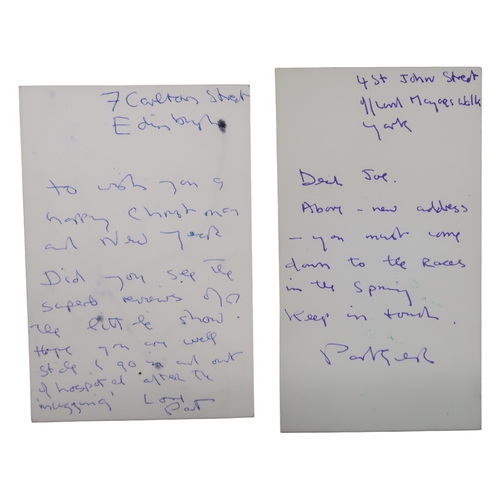 7 Carlton Street
Edinburgh
to wish you a
happy Christmas
and New Year
Did you see the
superb reviews of
the little show.
Hope you are well
Still I go in and out
of hospital after the
'mugging' Love
Pat
4 St John Street
Lord Mayors Walk
York
Dear Joe.
Above - new address
- you must come
down to the Races
in the Spring
Keep in touch.